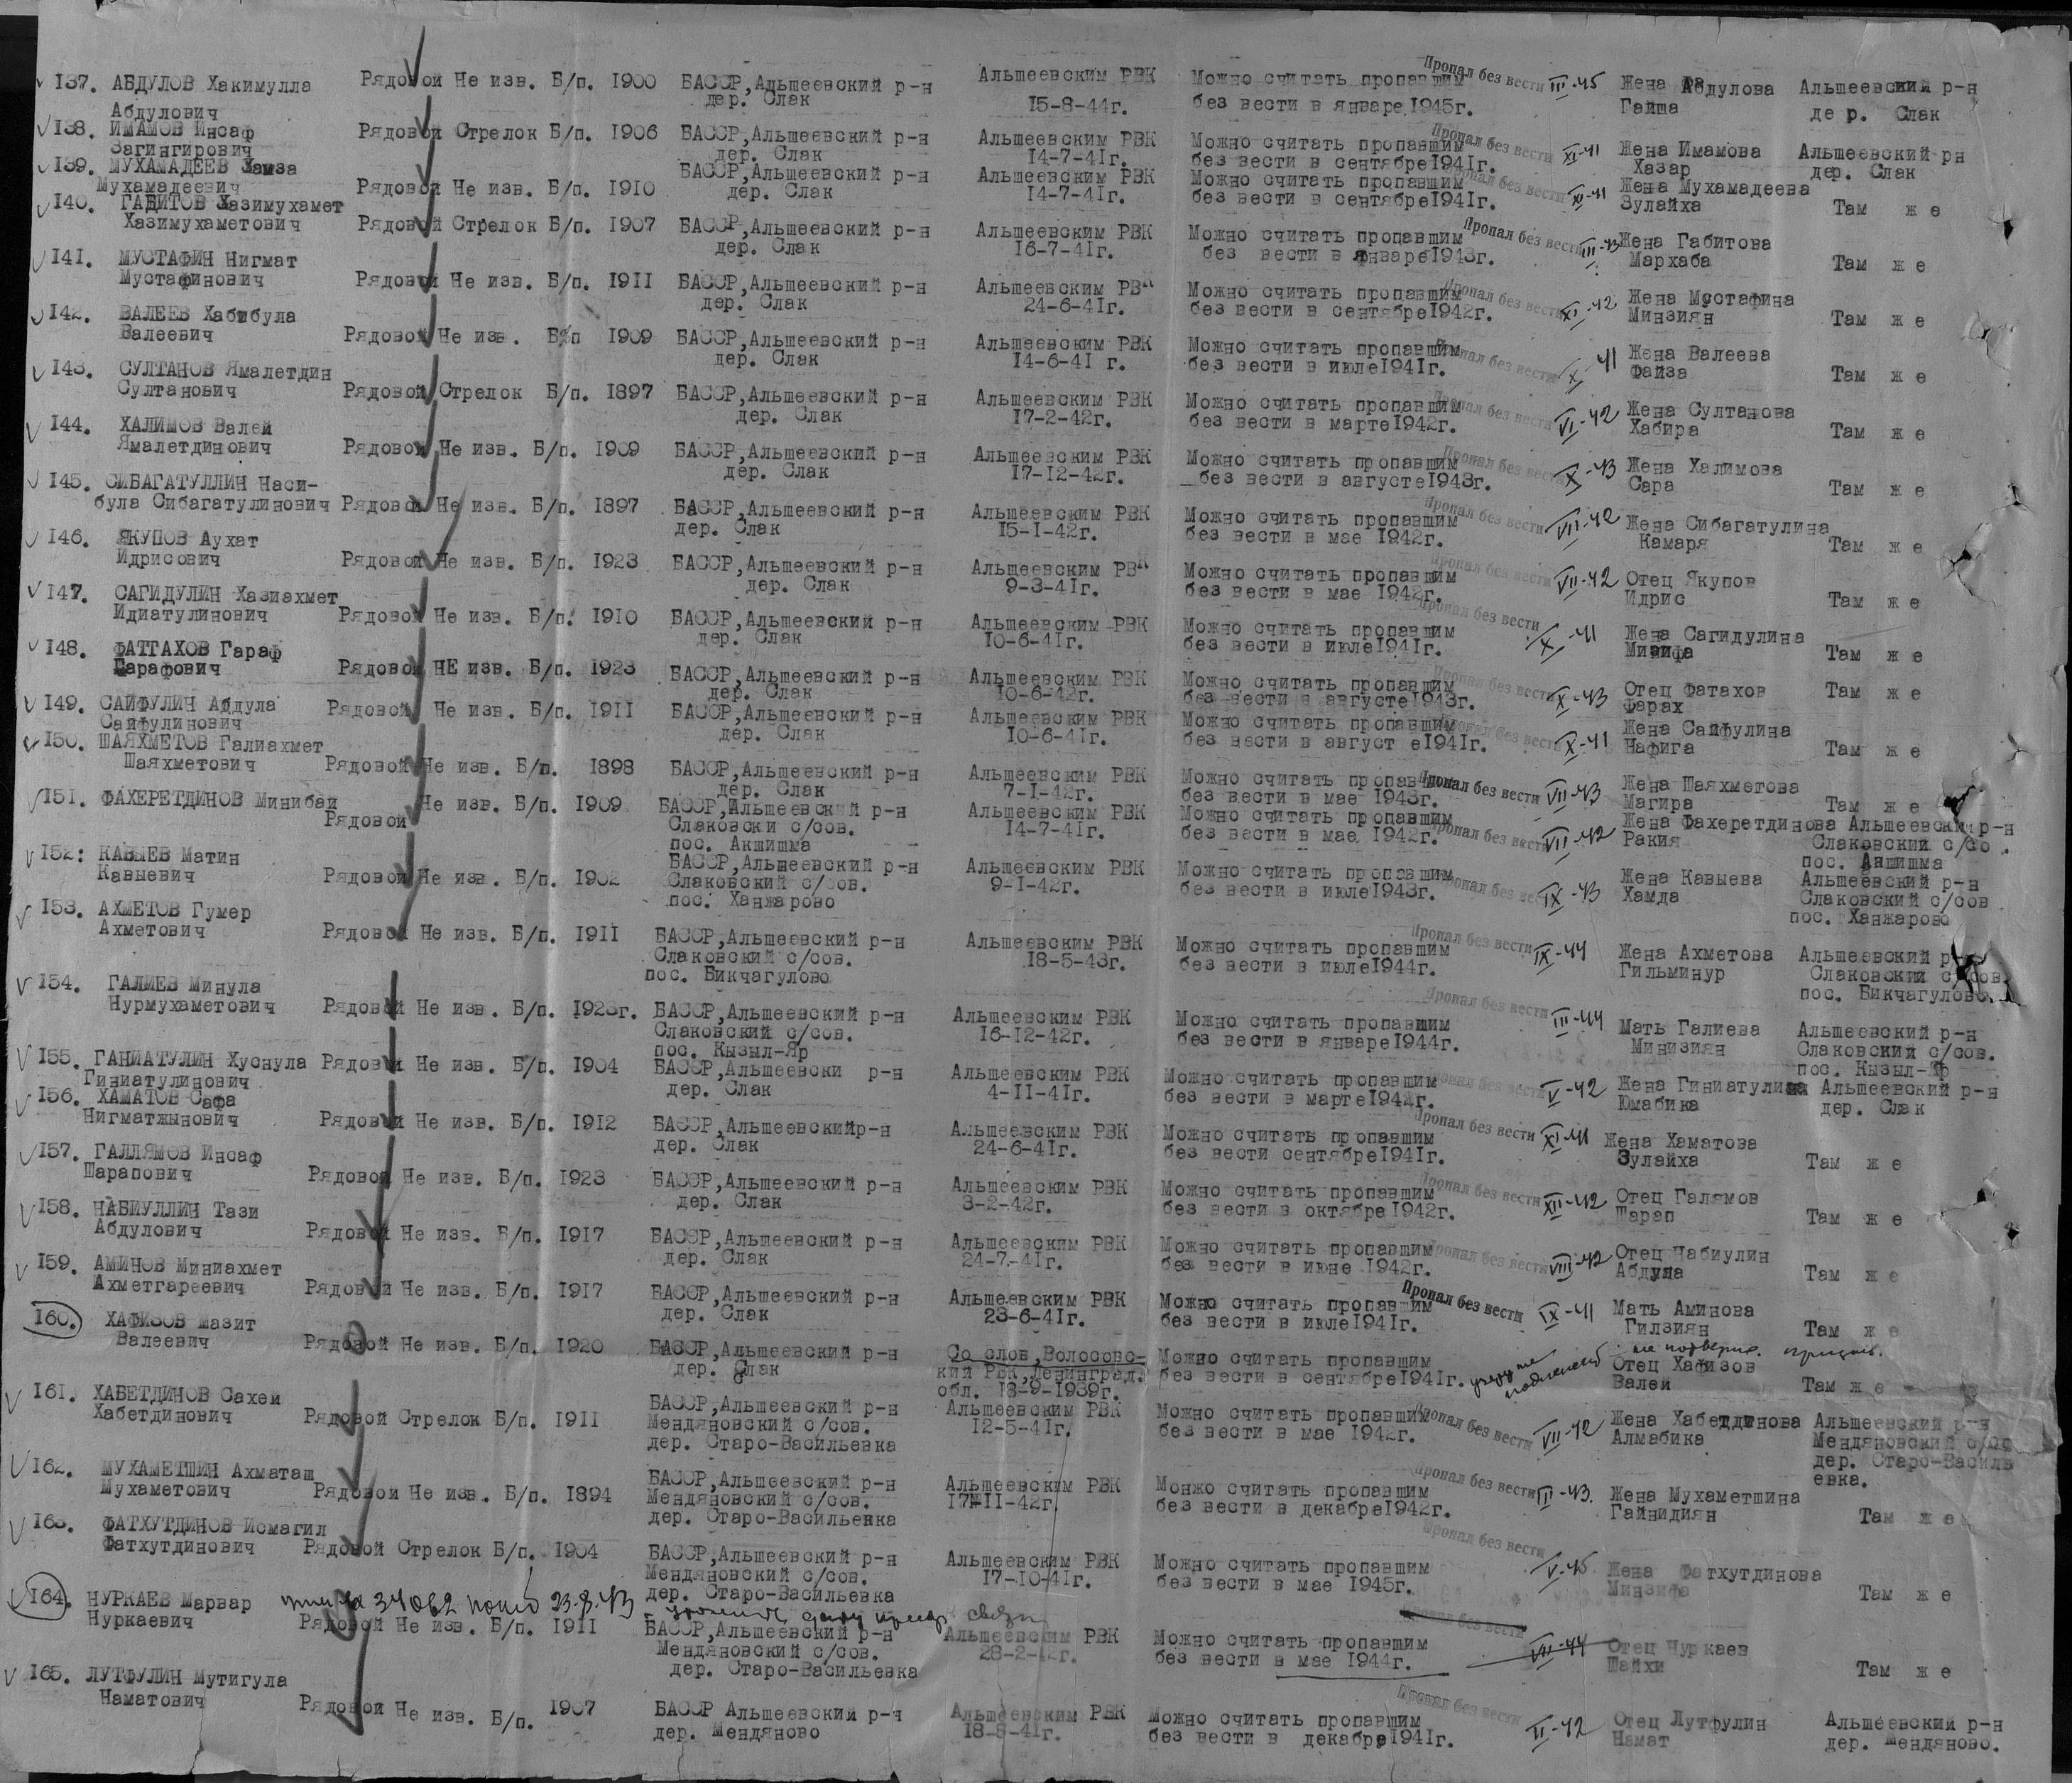 137. АБДУЛОВ Хакимулла Рядовой Не изв. Б/п. 1900 БАССР,Альшеевский р-н Альшеевским РВК Можно считать пропавшим Пропал без вести III-45 Жена Абдулова Альшеевский р-н
Абдулович дер. Слак 15-8-44г. без вести в январе 1945г. Гайша дер. Слак
138. ИМАМОВ Инсаф Рядовой Стрелок Б/п. 1906 БАССР,Альшеевский р-н Альшеевским РВК Можно считать пропавшим Пропал без вести XI-41 Жена Имамова Альшеевский рн
Загингирович дер. Слак 14-7-41г. без вести в сентябре1941г. Хазар дер. Слак
139. МУХАМАДЕЕВ Хамза БАССР,Альшеевский р-н Альшеевским РВК Можно считать пропавшим Пропал без вести XI-41 Жена Мухамадеева
Мухамадеевич Рядовой Не изв. Б/п. 1910 дер. Слак 14-7-41г. без вести в сентябре1941г. Зулайха Там же
140. ГАБИТОВ Хазимухамет
Хазимухаметович Рядовой Стрелок Б/п. 1907 БАССР,Альшеевский р-н Альшеевским РВК Можно считать пропавшим Пропал без вести III-43 Жена Габитова
дер. Слак 16-7-41г. без вести в январе1943г. Мархаба Там же
141. МУСТАФИН Нигмат
Мустафинович Рядовой Не изв. Б/п. 1911 БАССР,Альшеевский р-н Альшеевским РВК Можно считать пропавшим Пропал без вести XI-42 Жена Мустафина
дер. Слак 24-6-41г. без вести в сентябре1942г. Минзиян Там же
142. ВАЛЕЕВ Хабибула
Валеевич Рядовой Не изв. Б%п 1909 БАССР,Альшеевский р-н Альшеевским РВК Можно считать пропавшим Пропал без вести X-41 Жена Валеева
дер. Слак 14-6-41 г. без вести в июле1941г. Файза Там же
143. СУЛТАНОВ Ямалетдин
Султанович Рядовой Стрелок Б/п. 1897 БАССР,Альшеевский р-н Альшеевским РВК Можно считать пропавшим Пропал без вести VI-42 Жена Султанова
дер. Слак 17-2-42г. без вести в марте1942г. Хабира Там же
144. ХАЛИМОВ Валей
Ямалетдинович Рядовой Не изв. Б/п. 1909 БАССР,Альшеевский р-н Альшеевским РВК Можно считать пропавшим Пропал без вести X-43 Жена Халимова
дер. Слак 17-12-42г. без вести в августе1943г. Сара Там же
145. СИБАГАТУЛЛИН Наси-
була Сибагатулинович Рядовой Не изв. Б/п. 1897 БАССР,Альшеевский р-н Альшеевским РВК Можно считать пропавшим Пропал без вести VII-42 Жена Сибагатулина
дер. Слак 15-1-42г. без вести в мае 1942г. Камаря Там же
146. ЯКУПОВ Аухат
Идрисович Рядовой Не изв. Б/п. 1923 БАССР,Альшеевский р-н Альшеевским РВК Можно считать пропавшим Пропал без вести VII-42 Отец Якупов
дер. Слак 9-3-41г. без вести в мае 1942г. Идрис Там же
147. САГИДУЛИН Хазиахмет
Идиатулинович Рядовой Не изв. Б/п. 1910 БАССР,Альшеевский р-н Альшеевским РВК Можно считать пропавшим Пропал без вести X-41 Жена Сагидулина
дер. Слак 10-6-41г. без вести в июле1941г. Мизифа Там же
148. ФАТТАХОВ Гараф
Гарафович Рядовой НЕ изв. Б/п. 1923 БАССР,Альшеевский р-н Альшеевским РВК Можно считать пропавшим Пропал без вести X-43 Отец Фатахов Там же
дер. Слак 10-6-42г. без вести в августе1943г. Фарах
149. САЙФУЛИН Абдула Рядовой Не изв. Б/п. 1911 БАССР,Альшеевский р-н Альшеевским РВК Можно считать пропавшим Пропал без вести X-41 Жена Сайфулина
Сайфулинович дер. Слак 10-6-41г. без вести в август е1941г. Нафига Там же
150. ШАЯХМЕТОВ Галиахмет
Шаяхметович Рядовой Не изв. Б/п. 1898 БАССР,Альшеевский р-н Альшеевским РВК Можно считать пропавшим Пропал без вести VII-43 Жена Шаяхметова
дер. Слак 7-1-42г. без вести в мае 1943г. Магира Там же
151. ФАХЕРЕТДИНОВ Минибай Не изв. Б/п. 1909 БАССР,Альшеевский р-н Альшеевским РВК Можно считать пропавшим Пропал без вести VII-42 Жена Фахеретдинова Альшеевский р-н
Рядовой Слаковски с/сов. 14-7-41г. без вести в мае 1942г. Ракия Слаковский с/со .
пос. Акшишма пос. Аншишма
152: КАВЫЕВ Матин БАССР,Альшеевский р-н Альшеевским РВК Можно считать пропавшим Пропал без вести IX-43 Жена Кавыева Альшеевский р-н
Кавыевич Рядовой Не изв. Б/п. 1902 Слаковский с/сов. 9-1-42г. без вести в июле1943г. Хамда Слаковский с/сов
пос. Ханжарово пос. Ханжарово
153. АХМЕТОВ Гумер
Ахметович Рядовой Не изв. Б/п. 1911 БАССР,Альшеевский р-н Альшеевским РВК Можно считать пропавшим Пропал без вести IX-44 Жена Ахметова Альшеевский р-н
Слаковский с/сов. 18-5-43г. без вести в июле1944г. Гильминур Слаковский с/сов.
пос. Бикчагулово пос. Бикчагулово.
154. ГАЛИЕВ Минула
Нурмухаметович Рядовой Не изв. Б/п. 1923г. БАССР,Альшеевский р-н Альшеевским РВК Можно считать пропавшим Пропал без вести III-44 Мать Галиева Альшеевский р-н
Слаковский с/сов. 16-12-42г. без вести в январе1944г. Минизиян Слаковский с/сов.
пос. Кызыл-Яр пос. Кызыл-Яр
155. ГАНИАТУЛИН Хуснула Рядовой Не изв. Б/п. 1904 БАССР,Альшеевски р-н Альшеевским РВК Можно считать пропавшим Пропал без вести V-42 Жена Гиниатулина Альшеевский р-н
Гиниатулинович дер. Слак 4-11-41г. без вести в марте1942г. Юмабика дер. Слак
156. ХАМАТОВ Сафа
Нигматжынович Рядовой Не изв. Б/п. 1912 БАССР,Альшеевскийр-н Альшеевским РВК Можно считать пропавшим Пропал без вести XI-41 Жена Хаматова
дер. Слак 24-6-41г. без вести сентябре1941г. Зулайха Там же
157. ГАЛЛЯМОВ Инсаф
Шарапович Рядовой Не изв. Б/п. 1923 БАССР,Альшеевский р-н Альшеевским РВК Можно считать пропавшим Пропал без вести XII-42 Отец Галямов
дер. Слак 3-2-42г. без вести в октябре 1942г. Шарап Там же
158. НАБИУЛЛИН Тази
Абдулович Рядовой Не изв. Б/п. 1917 БАССР,Альшеевский р-н Альшеевским РВК Можно считать пропавшим Пропал без вести VIII-42 Отец Набиулин
дер. Слак 24-7-41г. без вести в июне 1942г. Абдула Там же
159. АМИНОВ Миниахмет
Ахметгареевич Рядовой Не изв. Б/п. 1917 БАССР,Альшеевский р-н Альшеевским РВК Можно считать пропавшим Пропал без вести IX-41 Мать Аминова
дер. Слак 23-6-41г. без вести в июле1941г. Гилзиян Там же
160. ХАФИЗОВ Мазит
Валеевич Рядовой Не изв. Б/п. 1920 БАССР,Альшеевский р-н Со слов,Волосовс- Можно считать пропавшим Отец Хафизов
дер. Слак кий РВК,Ленинград. без вести в сентябре1941г. Валей Там же
обл. 18-9-1939г.
161. ХАБЕТДИНОВ Сахем БАССР,Альшеевский р-н Альшеевским РВК Можно считать пропавшим Пропал без вести VII-42 Жена Хабетдинова Альшеевский р-н
Хабетдинович Рядовой Стрелок Б/п. 1911 Мендяновский с/сов. 12-5-41г. без вести в мае 1942г. Алмабика Мендяновский с/сс
дер. Старо-Васильевка дер. Старо-Василь
евка.
162. МУХАМЕТШИН Ахматаш БАССР,Альшеевский р-н Альшеевским РВК Монжо считать пропавшим Пропал без вести II-43. Жена Мухаметшина
Мухаметович Рядовой Не изв. Б/п. 1894 Мендяновский с/сов. 17-11-42г. без вести в декабре1942г. Гайнидиян Там же
дер. Старо-Васильевка
163. ФАТХУТДИНОВ Исмагил
Фатхутдинович Рядовой Стрелок Б/п. 1904 БАССР,Альшеевский р-н Альшеевским РВК Можно считать пропавшим Пропал без вести V-45 Жена Фатхутдинова
Мендяновский с/сов. 17-10-41г. без вести в мае 1945г. Минзифа Там же
дер. Старо-Васильевка
164. НУРКАЕВ Марвар 34062 23-8-43 связи
Нуркаевич Рядовой Не изв. Б/п. 1911 БАССР,Альшеевский р-н Альшеевским РВК Можно считать пропавшим Пропал без вести VII-44 Отец Нуркаев
Мендяновский с/сов. 28-2-42г. без вести в мае 1944г. Шайхи Там же
дер. Старо-Васильевка
165. ЛУТФУЛИН Мутигула
Наматович Рядовой Не изв. Б/п. 1907 БАССР Альшеевский р-н Альшеевским РВК Можно считать пропавшим Пропал без вести II-42 Отец Лутфулин Альшеевский р-н
дер. Мендяново 18-8-41г. без вести в декабре1941г. Намат дер. Мендяново.